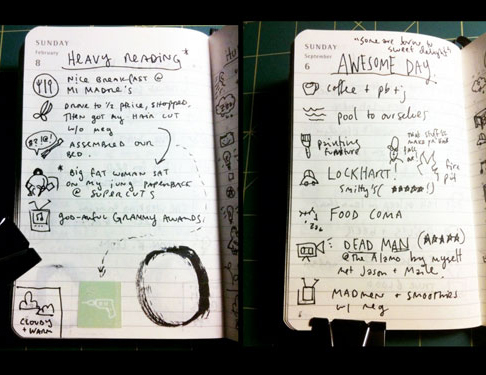 SUNDAY
February
8
HEAVY READING *
NICE BREAKFAST @
MI MADRE'S
DROVE TO 1/2 PRICE, SHOPPED,
THEN GOT MY HAIR CUT
W/O MEG
ASSEMBLED OUR
BED.
* BIG FAT WOMAN SAT
ON MY JUNG PAPERBACK
@ SUPERCUTS
GOD-AWFUL GRAMMY AWARDS.
CLOUDY
+ WARM
SUNDAY
September
6
"some are born to
sweet delight"
AWESOME DAY.
coffee + pb + j
pool to ourselves
painting
furniture
that stuff'll
make you
LOCKHART!
Smitty's (★★★★★!)
fire
pit
FOOD COMA
DEAD MAN (★★★★★)
@ the Alamo by myself
met Jason +
MADMEN + SMOOTHIES
w/ meg